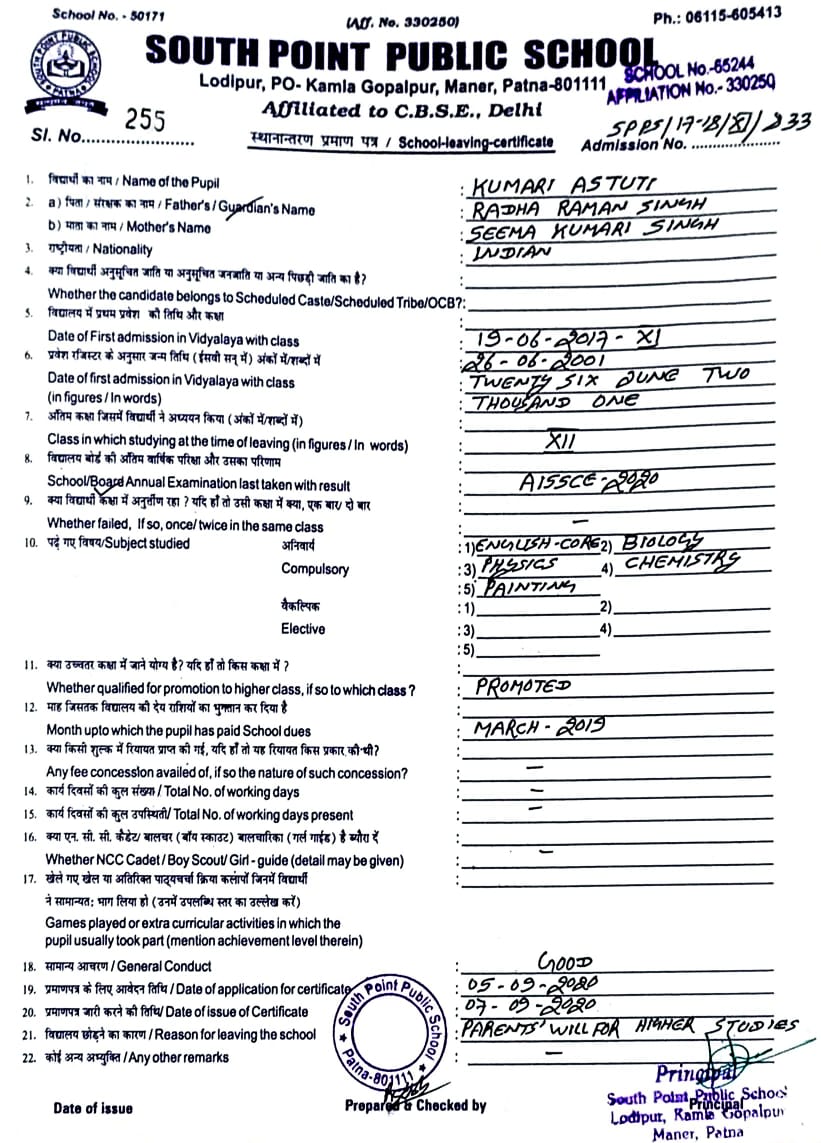 School No. - 50171
(Aff. No. 330250)
Ph.: 06115-605413
SOUTH POINT PUBLIC SCHOOL
Lodipur, PO- Kamla Gopalpur, Maner, Patna-801111
SCHOOL No.-65244
AFFILIATION No.- 330250
Affiliated to C.B.S.E., Delhi
Sl. No. 255
स्थानान्तरण प्रमाण पत्र / School-leaving-certificate
Admission No. SPPS/17-18/XI/233
1. विद्यार्थी का नाम / Name of the Pupil : KUMARI ASTUTI
2. a) पिता / संरक्षक का नाम / Father's / Guardian's Name : RADHA RAMAN SINGH
b) माता का नाम / Mother's Name : SEEMA KUMARI SINGH
3. राष्ट्रीयता / Nationality : INDIAN
4. क्या विद्यार्थी अनुसूचित जाति या अनुसूचित जनजाति या अन्य पिछड़ी जाति का है?
Whether the candidate belongs to Scheduled Caste/Scheduled Tribe/OCB?:
5. विद्यालय में प्रथम प्रवेश की तिथि और कक्षा
Date of First admission in Vidyalaya with class : 19-06-2017- XI
6. प्रवेश रजिस्टर के अनुसार जन्म तिथि (ईसवी सन् में) अंकों में/शब्दों में : 26-06-2001
Date of first admission in Vidyalaya with class : TWENTY SIX JUNE TWO
(in figures / In words) : THOUSAND ONE
7. अंतिम कक्षा जिसमें विद्यार्थी ने अध्ययन किया (अंकों में/शब्दों में)
Class in which studying at the time of leaving (in figures / In words) : XII
8. विद्यालय बोर्ड की अंतिम वार्षिक परिक्षा और उसका परिणाम
School/Board Annual Examination last taken with result : AISSCE-2020
9. क्या विद्यार्थी कक्षा में अनुतीण रहा ? यदि हाँ तो उसी कक्षा में क्या, एक बार/ दो बार
Whether failed, If so, once/ twice in the same class : –
10. पढ़ें गए विषय/Subject studied अनिवार्य : 1) ENGLISH-CORE 2) BIOLOGY
Compulsory : 3) PHYSICS 4) CHEMISTRY
: 5) PAINTING
वैकल्पिक : 1) 2)
Elective : 3) 4)
: 5)
11. क्या उच्चतर कक्षा में जाने योग्य है? यदि हाँ तो किस कक्षा में ?
Whether qualified for promotion to higher class, if so to which class ? : PROMOTED
12. माह जिसतक विद्यालय की देय राशियों का भुगतान कर दिया है
Month upto which the pupil has paid School dues : MARCH - 2019
13. क्या किसी शुल्क में रियायत प्राप्त की गई, यदि हाँ तो यह रियायत किस प्रकार की थी?
Any fee concession availed of, if so the nature of such concession? : –
14. कार्य दिवसों की कुल संख्या / Total No. of working days : –
15. कार्य दिवसों की कुल उपस्थिती/ Total No. of working days present : –
16. क्या एन. सी. सी. कैडेट/ बालचर (बॉय स्काउट) बालचारिका (गर्ल गाईड) है ब्यौरा दें
Whether NCC Cadet / Boy Scout/ Girl - guide (detail may be given) : –
17. खेले गए खेल या अतिरिक्त पाठ्यचर्चा क्रिया कलापों जिनमें विद्यार्थी
ने सामान्यत: भाग लिया हो (उनमें उपलब्धि स्तर का उल्लेख करें)
Games played or extra curricular activities in which the
pupil usually took part (mention achievement level therein)
18. सामान्य आचरण / General Conduct : GOOD
19. प्रमाणपत्र के लिए आवेदन तिथि / Date of application for certificate : 05-09-2020
20. प्रमाणपत्र जारी करने की तिथि/ Date of issue of Certificate : 07-09-2020
21. विद्यालय छोड़ने का कारण / Reason for leaving the school : PARENTS' WILL FOR HIGHER STUDIES
22. कोई अन्य अभ्युक्ति / Any other remarks : –
South Point Public School
Patna-801111
Date of issue
Prepared & Checked by
Principal
Principal
South Point Public School
Lodipur, Kamla Gopalpur
Maner, Patna